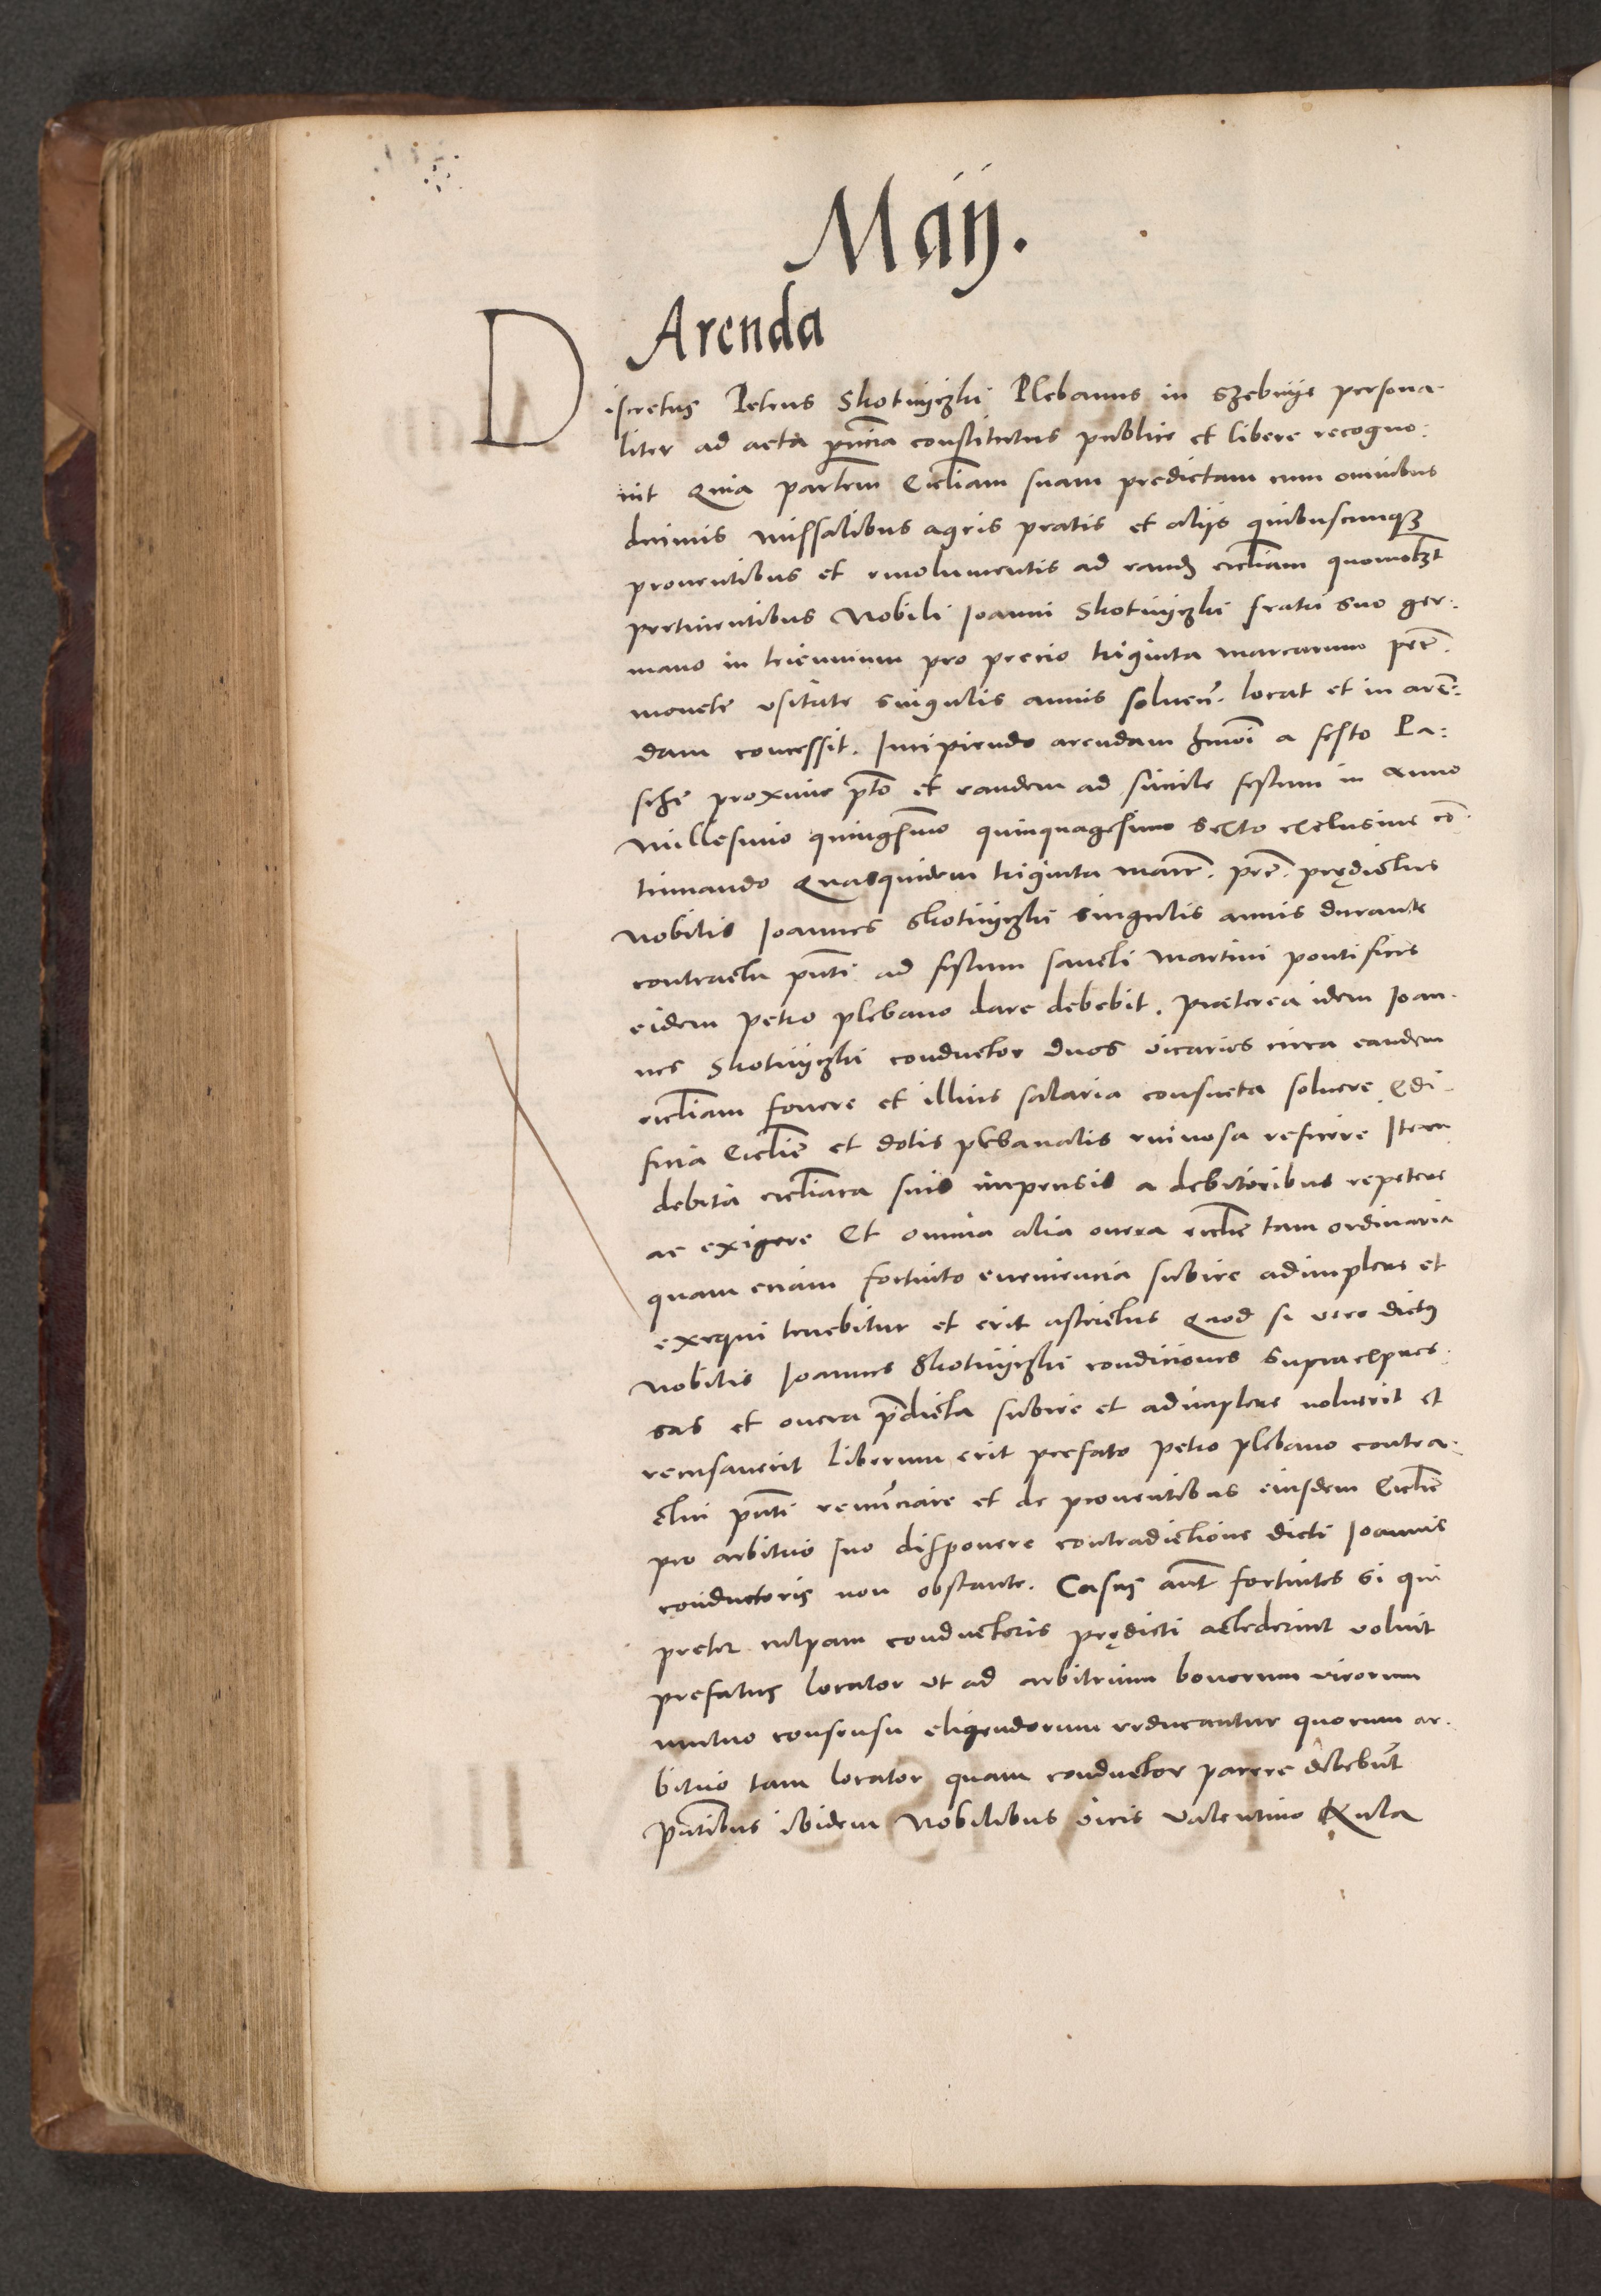 Maij.
Arenda
Discretus Petrus Skotniczki Plebanus in Szebnije persona-
liter ad acta pn̄cia constitutus publice et libere recogno:
uit Quia partem Eccl̄iam suam predictam cum omnibus
decimis missalibus agris pratis et alijs quibuscunqꝫ
prouentibus et emolumentis ad eandꝫ eccl̄iam quomolꝫt
pertinentibus Nobili Joanni Skotniczki fratri suo ger:
mano in triennium pro precio triginta marcarum pec̄.
monete vsitate singulis annis soluen̄. locat et in aren̄:
dam concessit. Incipiendo arendam hmōi a festo Pa:
sche proxime p̄to et eandem ad simile festum in anno
Millesimo quinges̄imo quinquagesimo sexto exclusiue cō
tinuando Quasquidem triginta marc̄. pec̄. prędictus
Nobilis Joannes Skotniczki singulis annis durante
contractu pn̄ti ad festum sancti Martini pontificis
eidem Petro plebano dare debebit. Praeterea idem Joan-
nes Skotniczki conductor duos vicarios circa eandem
eccl̄iam fouere et illius salaria consueta soluere Edi-
ficia Eccl̄ie et dotis plebanalis ruinosa reficere Item
debita eccl̄iara suis impensis a debitoribus repetere
ac exigere Et omnia alia onera eccl̄ie tam ordinaria
quam eciam fortuito eueniencia subire adimplere et
exequi tenebitur et erit astrictus Quod si vero dictꝰ
Nobilis Joannes Skotniczki condiciones supraexpres-
sas et onera p̄dicta subire et adimplere noluerit et
recusauerit liberum erit prefato Petro plebano contra-
ctui pn̄ti renūciare et de prouentibus eiusdem Eccl̄ie
pro arbitrio suo disponere contradictione dicti Joannis
conductoris non obstante. Casus aūt fortuitos si qui
preter culpam conductoris prędicti acciderint voluit
prefatus locator vt ad arbitrium bonorum virorum
mutuo consensu eligendorum reducantur quorum ar-
bitrio tam locator quam conductor parere debebūt
Pn̄tibus ibidem Nobilibus viris Valentino Kula